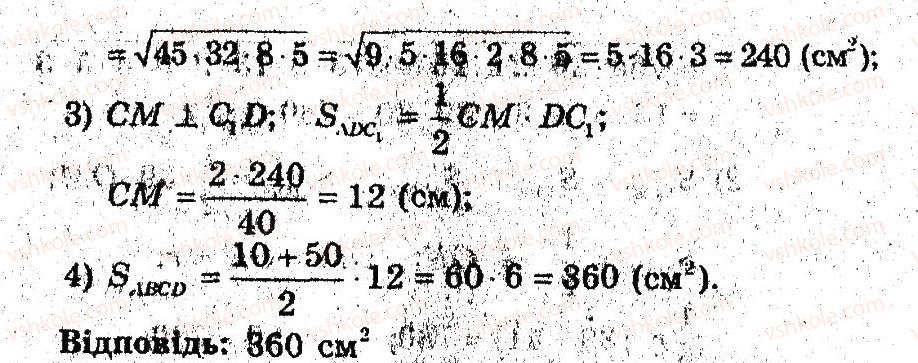 = √45 · 32 · 8 · 5 = √9 · 5 · 16 · 2 · 8 · 5 = 5 · 16 · 3 = 240 (см²);
3) CM ⊥ C₁D; S_ΔDC₁ = 1/2 CM · DC₁;
CM = 2 · 240 / 40 = 12 (см);
4) S_ABCD = 10 + 50 / 2 · 12 = 60 · 6 = 360 (см²).
Відповідь: 360 см²